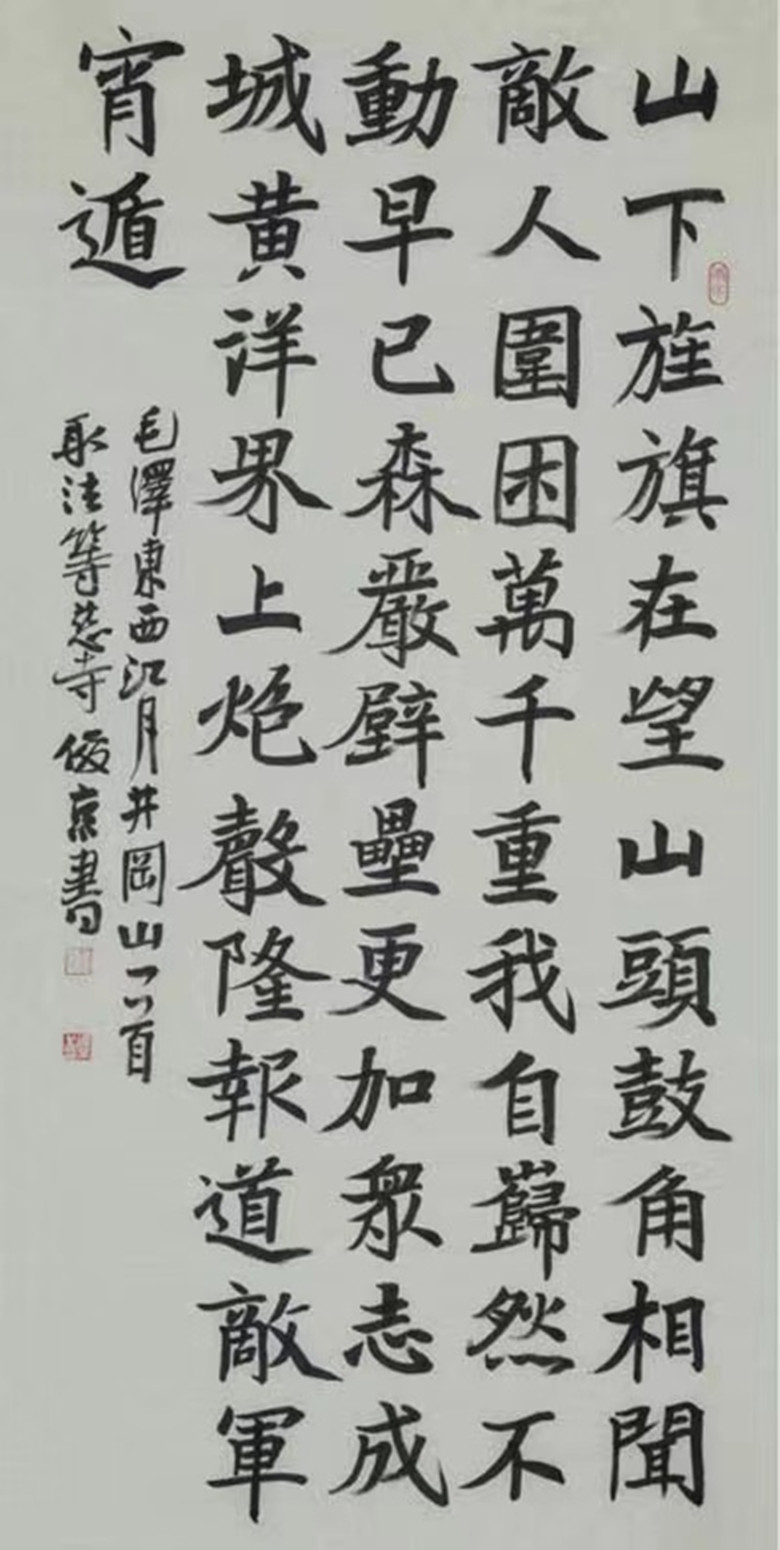 山下旌旗在望山頭鼓角相聞
敵人圍困萬千重我自巋然不
動早已森嚴壁壘更加衆志成
城黄洋界上炮聲隆報道敵軍
宵遁
毛澤東西江月井岡山一首
取法等慈寺俊京書